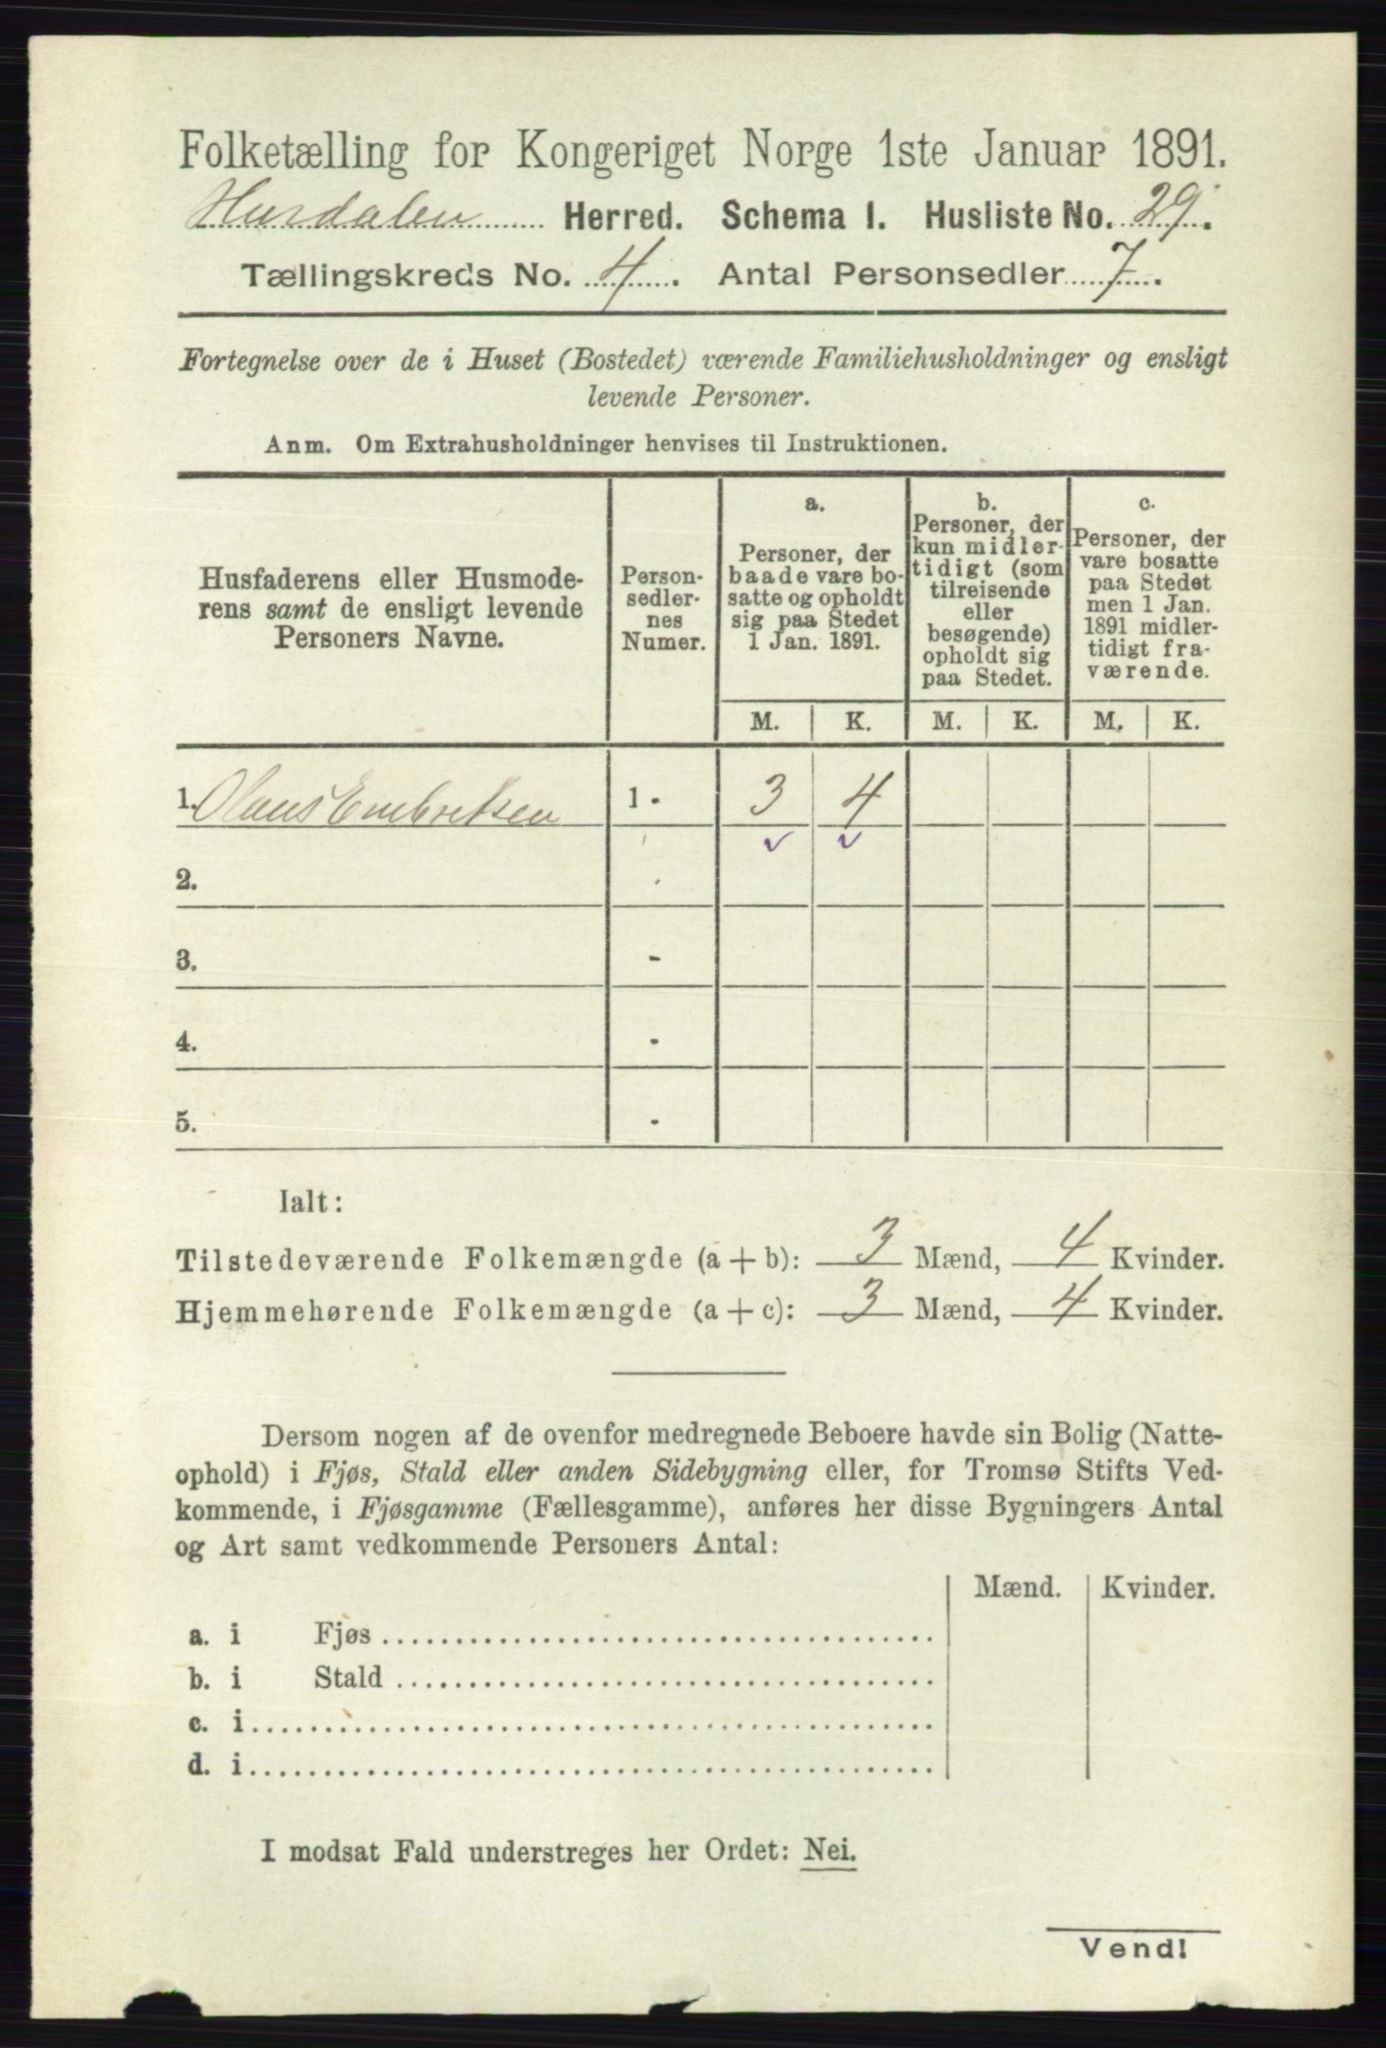 Folketælling for Kongeriget Norge 1ste Januar 1891.
Hurdalen Herred. Schema I. Husliste No. 29.
Tællingskreds No. 4. Antal Personsedler 7.
Fortegnelse over de i Huset (Bostedet) værende Familiehusholdninger og ensligt
levende Personer.
Anm. Om Extrahusholdninger henvises til Instruktionen.
Husfaderens eller Husmode-
rens samt de ensligt levende
Personers Navne.
Person-
sedler-
nes
Numer.
a.
Personer, der
baade vare bo-
satte og opholdt
sig paa Stedet
1 Jan. 1891.
b.
Personer, der
kun midler-
tidigt (som
tilreisende
eller
besøgende)
opholdt sig
paa Stedet.
c.
Personer, der
vare bosatte
paa Stedet
men 1 Jan.
1891 midler-
tidigt fra-
værende.
M. K. M. K. M. K.
1. Olaus Embretsen 1 - 3 4
2.
3. -
4. -
5. -
Ialt:
Tilstedeværende Folkemængde (a + b): 3 Mænd, 4 Kvinder.
Hjemmehørende Folkemængde (a + c): 3 Mænd, 4 Kvinder.
Dersom nogen af de ovenfor medregnede Beboere havde sin Bolig (Natte-
ophold) i Fjøs, Stald eller anden Sidebygning eller, for Tromsø Stifts Ved-
kommende, i Fjøsgamme (Fællesgamme), anføres her disse Bygningers Antal
og Art samt vedkommende Personers Antal:
Mænd. Kvinder.
a. i Fjøs
b. i Stald
c. i
d. i
I modsat Fald understreges her Ordet: Nei.
Vend!